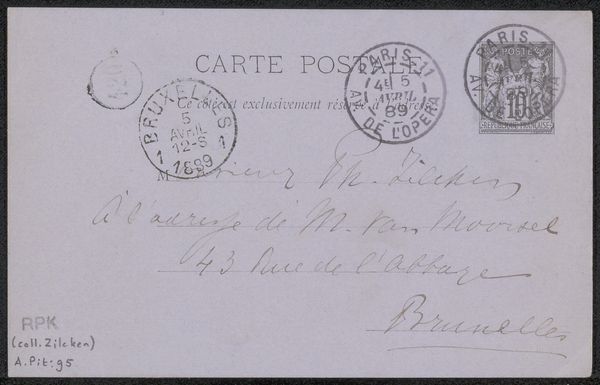 CARTE POSTALE
Ce côté est exclusivement réservé à l'adresse
PARIS. 11
4E 5
AVRIL
89
AV. DE L'OPERA
PARIS
5
AVRIL
AV. DE L'OPERA
POSTES
10
REPUBLIQUE FRANÇAISE
BRUXELLES
5
AVRIL
12-S
1 1889 1
Monsieur Ph. Zilcken
à l'adresse de M. van Moorsel
43 Rue de l'Abbaye
Bruxelles
RPK
(coll. Zilcken)
A. Pit: 95